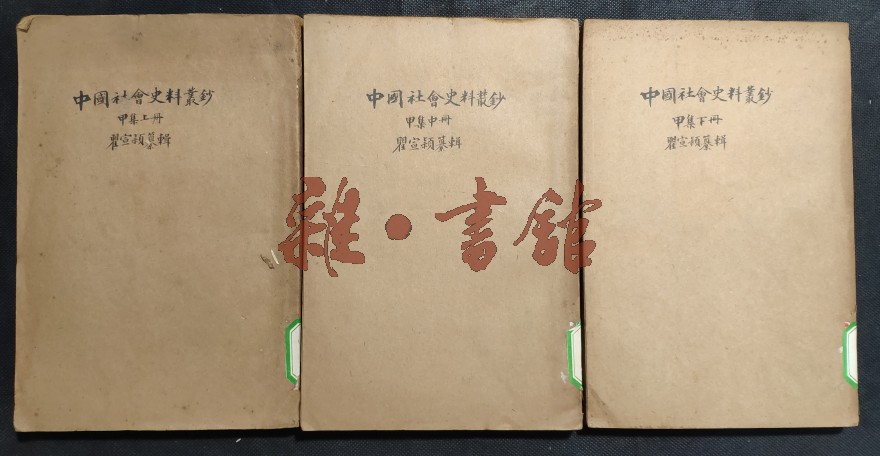 中國社會史料叢鈔
甲集上冊
瞿宣穎纂輯
中國社會史料叢鈔
甲集中冊
瞿宣穎纂輯
中國社會史料叢鈔
甲集下冊
瞿宣穎纂輯
雜·書館